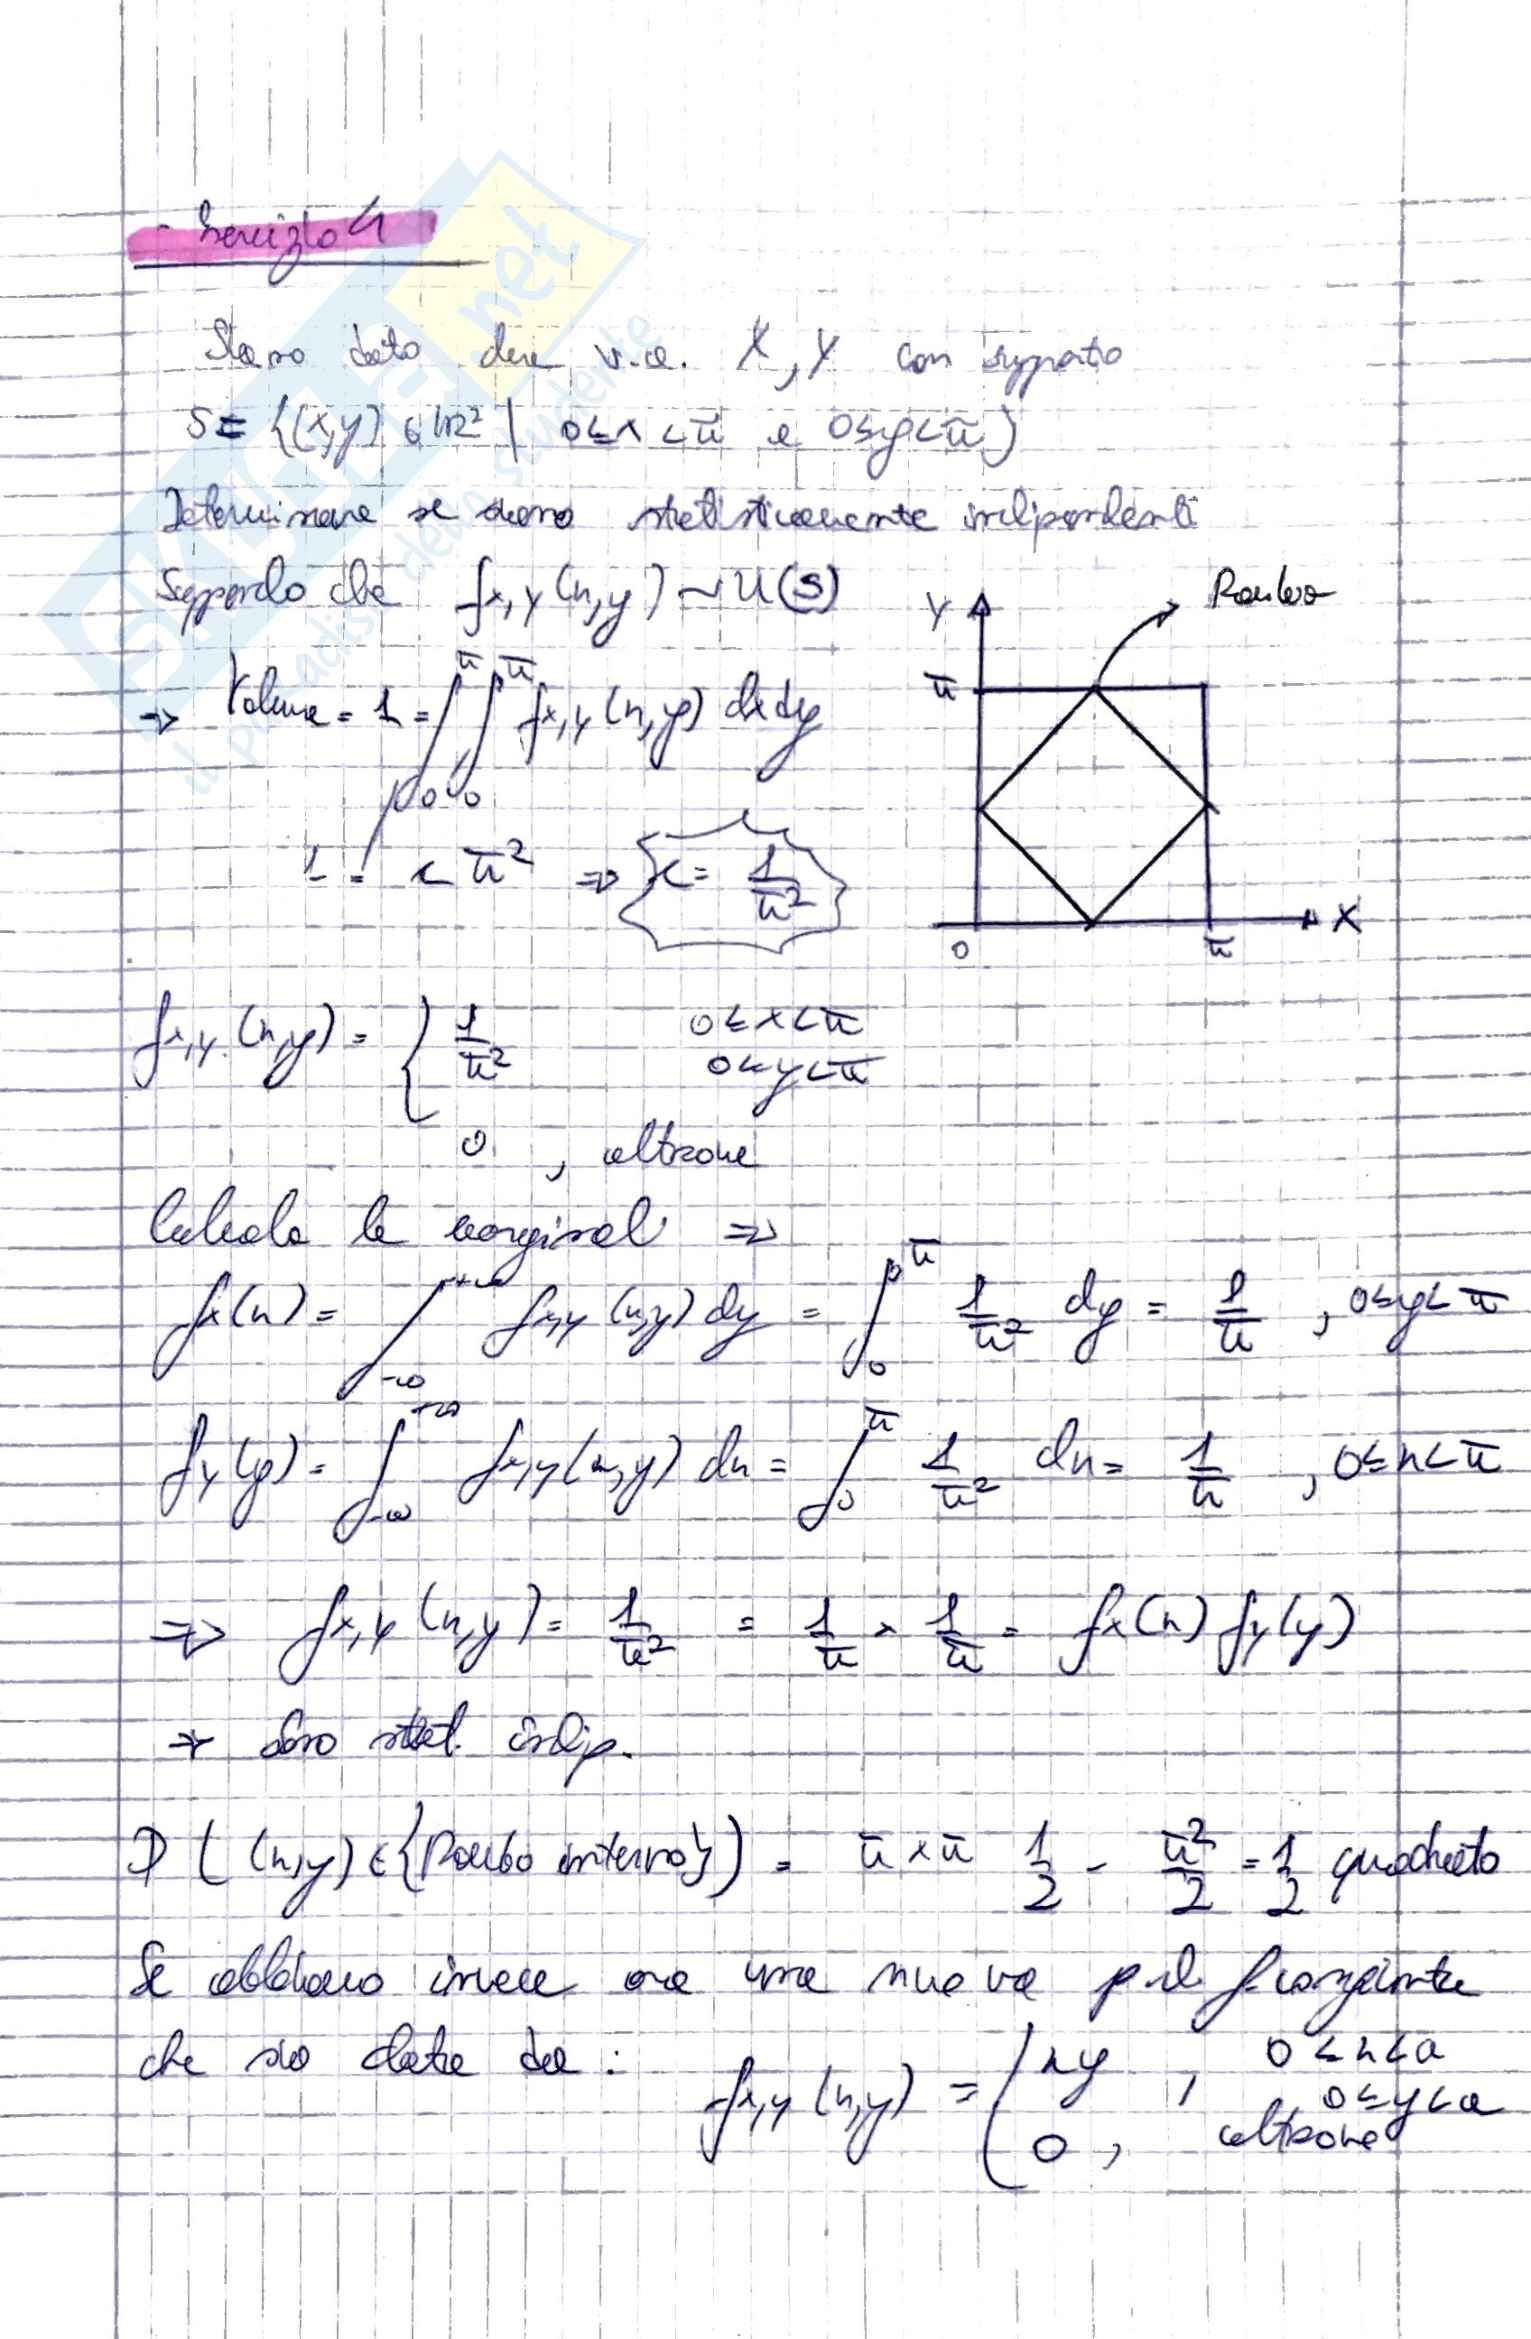 - Esercizio 4
Siano dato due v.a. X, Y con supporto
S = {(x,y) ∈ R² | 0≤x<π e 0≤y<π}
Determinare se siano statisticamente indipendenti
Sapendo che fx,y(x,y) ~ U(S)
Y
Rombo
π
⇒ Volume = 1 = ∫₀^π ∫₀^π fx,y(x,y) dxdy
1 = c π² ⇒ {c = 1/π²
X
0
π
fx,y(x,y) = { 1/π² 0≤x<π
0≤y<π
0 , altrove
Calcolo le marginali ⇒
fx(x) = ∫_-∞^+∞ fx,y(x,y) dy = ∫₀^π 1/π² dy = 1/π , 0≤y<π
fy(y) = ∫_-∞^+∞ fx,y(x,y) dx = ∫₀^π 1/π² dx = 1/π , 0≤x<π
⇒ fx,y(x,y) = 1/π² = 1/π × 1/π = fx(x) fy(y)
⇒ Sono stat. indip.
P((x,y) ∈ {Rombo interno}) = π×π 1/2 - π²/2 = 1/2 quadrato
Se abbiamo invece ora una nuova pdf congiunta
che sia data da : fx,y(x,y) = { xy , 0≤x<a
0≤y<a
0 , altrove
SKUOLA.net
il paradiso dello studente